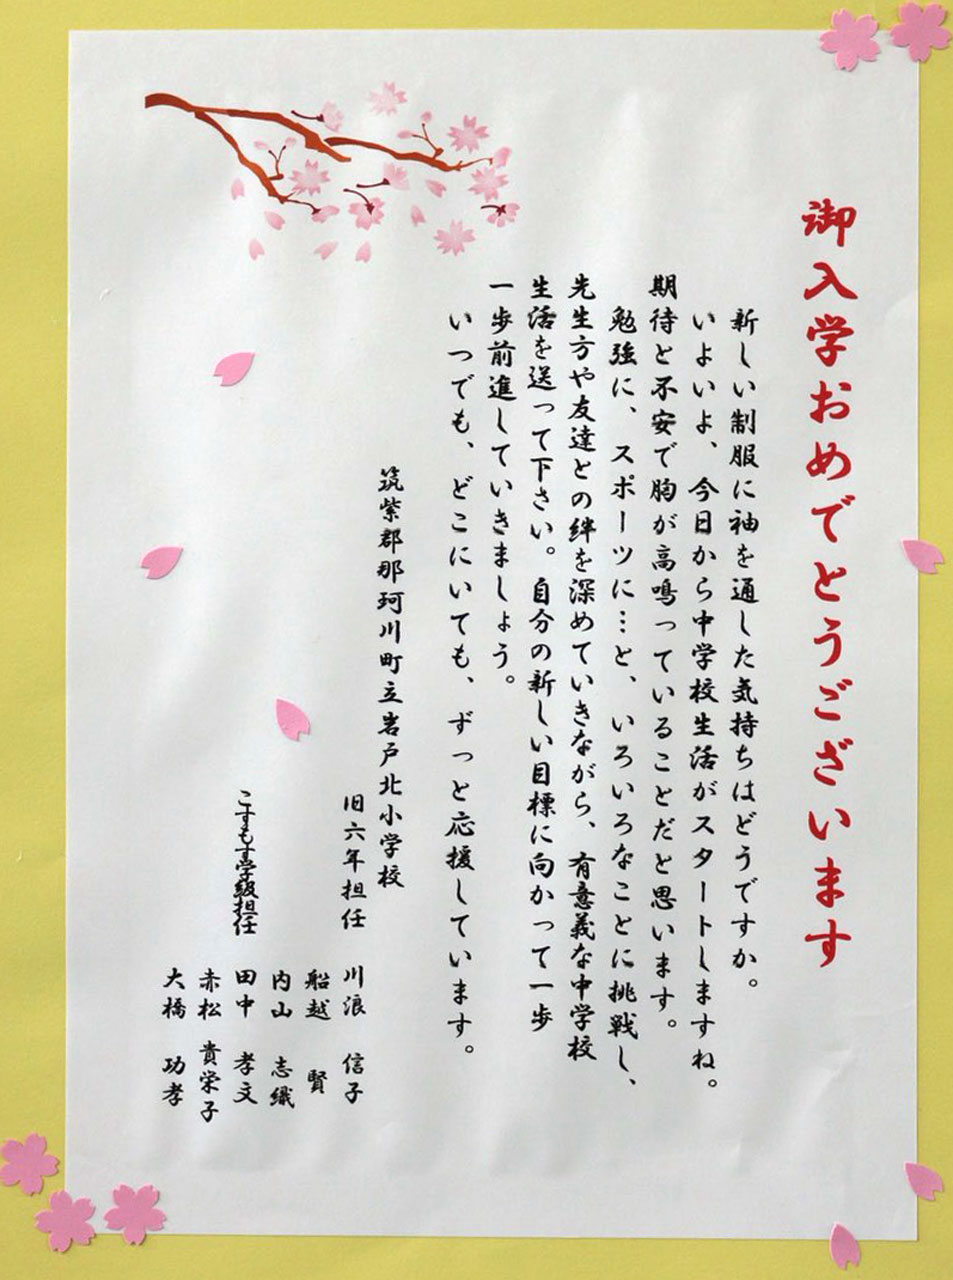 御入学おめでとうございます
新しい制服に袖を通した気持ちはどうですか。
いよいよ、今日から中学校生活がスタートしますね。
期待と不安で胸が高鳴っていることだと思います。
勉強に、スポーツに…と、いろいろなことに挑戦し、
先生方や友達との絆を深めていきながら、有意義な中学校
生活を送って下さい。自分の新しい目標に向かって一歩
一歩前進していきましょう。
いつでも、どこにいても、ずっと応援しています。
筑紫郡那珂川町立岩戸北小学校
旧六年担任 川浪 信子
船越 賢
内山 志織
こすもす学級担任 田中 孝文
赤松 貴栄子
大橋 功孝